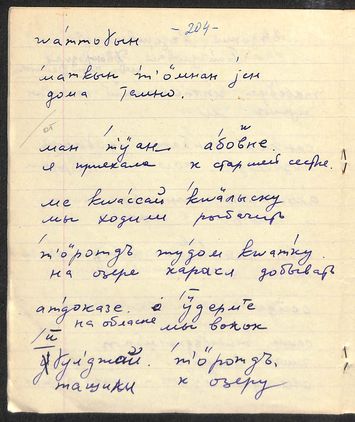 -204-
ма́ттоӷын
ма́ткын тӧ́мнан јен
дома темно.
ман тӱ́ан а́бовне.
я приехала к старшей сестре.
ме ква́ссай ква́лыску
мы ходили рыбачить
тӧ́рождъ ту́дом ква́тку.
на озере карася добывать
андоказе. ӱ́дерме
на обласке мы волок
тӧ́рождъ.
тащили к озеру